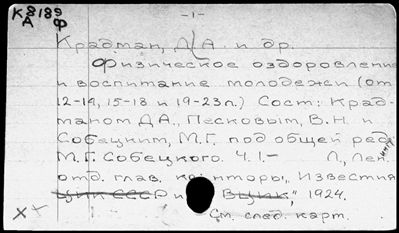 К 8189
А Ф
-1-
Крадман, Д.А. и др.
Физическое оздоровление
и воспитание молодежи (от
12-14, 15-18 и 19-23л.) Сост: Крад-
маном Д.А., Песковым, В.Н. и
Собецким, М.Г. под общей ред.
М.Г. Собецкого. Ч.1- Л., Лен.
отд. глав. конторы, "Известия
ЦИК СССР и ВЦИК", 1924.
См. след. карт.